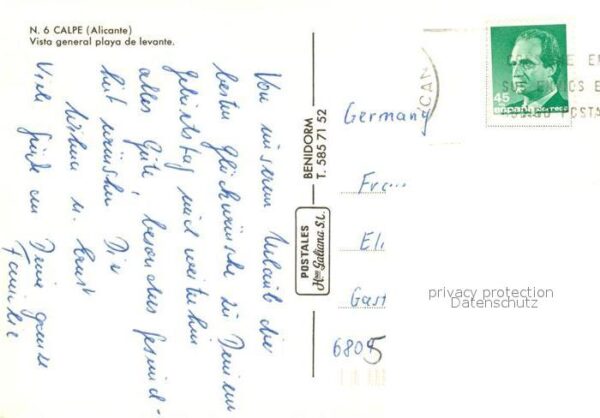 N. 6 CALPE (Alicante)
Vista general playa de levante.
Von unserem Urlaub die
besten Glückwünsche zu Deinem
Geburtstag und weiterhin
alles Gute, besonders Gesund-
heit wünschen Dir
u. Ernst
Viele Grüße an Deine ganze
Familie
BENIDORM
T. 585 71 52
POSTALES
Hnos Galiana S.L.
Germany
Fra
El
Gast
6805
45
ESPAÑA
privacy protection
Datenschutz